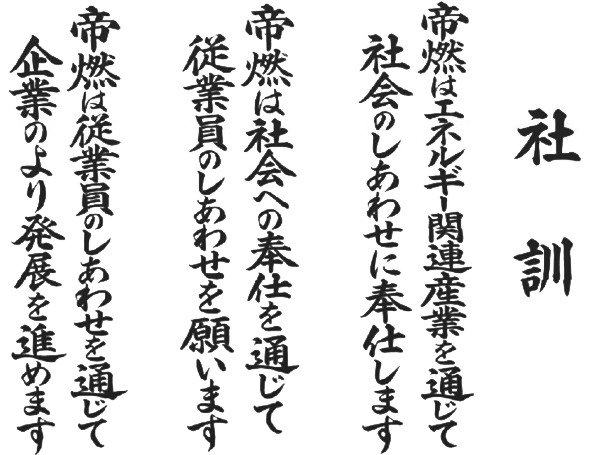 社訓
帝燃はエネルギー関連産業を通じて
社会のしあわせに奉仕します
帝燃は社会への奉仕を通じて
従業員のしあわせを願います
帝燃は従業員のしあわせを通じて
企業のより発展を進めます